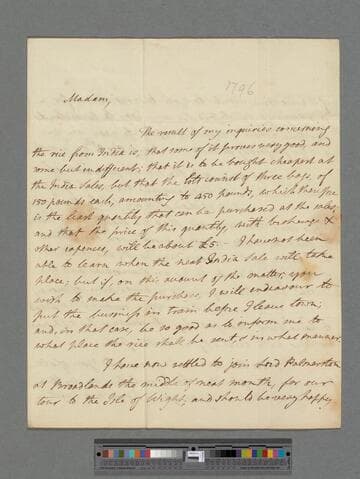 1796
Madam,
The result of my inquiries concerning
the rice from India is, that some of it proves very good, and
some but indifferent; that it is to be bought cheapest at
the India Sales, but that the lots consist of three bags, of
150 pounds each, amounting to 450 pounds, which therefore
is the least quantity that can be purchased at the sales,
and that the price of this quantity, with brokerage &
other expences, will be about £5. – I have not been
able to learn when the next India Sale will take
place; but if, on this account of the matter, you
wish to make the purchase, I will endeavour to
put the business in train before I leave town;
and, in that case, be so good as to inform me to
what place the rice shall be sent, & in what manner.
I have now settled to join Lord Palmerston
at Broadlands the middle of next month, for our
tour to the Isle of Wight, and should be very happy